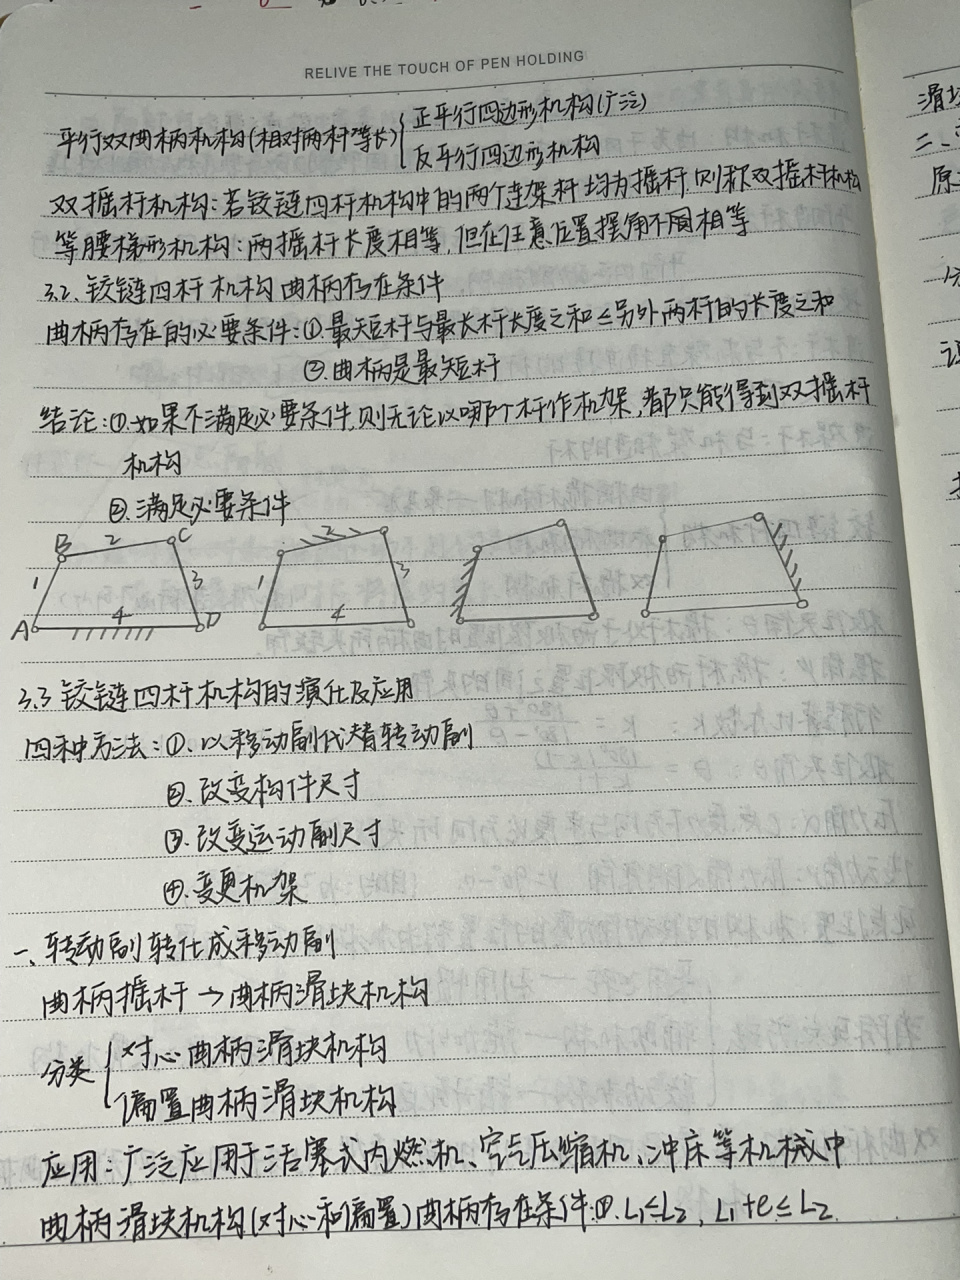 RELIVE THE TOUCH OF PEN HOLDING
平行双曲柄机构(相对两杆等长) { 正平行四边形机构(广泛)
反平行四边形机构
双摇杆机构:若铰链四杆机构中的两个连架杆均为摇杆,则称双摇杆机构
等腰梯形机构:两摇杆长度相等,但在任意位置摆角不同相等
3.2.铰链四杆机构曲柄存在条件
曲柄存在的必要条件:①.最短杆与最长杆长度之和≤另外两杆的长度之和
②.曲柄是最短杆
结论:①.如果不满足必要条件,则无论以哪个杆作机架,都只能得到双摇杆
机构
②.满足必要条件
B 2 C 2
1 3 1 3
A 4 D 4
3.3 铰链四杆机构的演化及应用
四种方法:①.以移动副代替转动副
②.改变构件尺寸
③.改变运动副尺寸
④.变更机架
一、转动副转化成移动副
曲柄摇杆→曲柄滑块机构
分类 { 对心曲柄滑块机构
偏置曲柄滑块机构
应用:广泛应用于活塞式内燃机、空气压缩机、冲床等机械中
曲柄滑块机构(对心和偏置)曲柄存在条件:①.L₁≤L₂, L₁+e≤L₂
滑块
二、
原